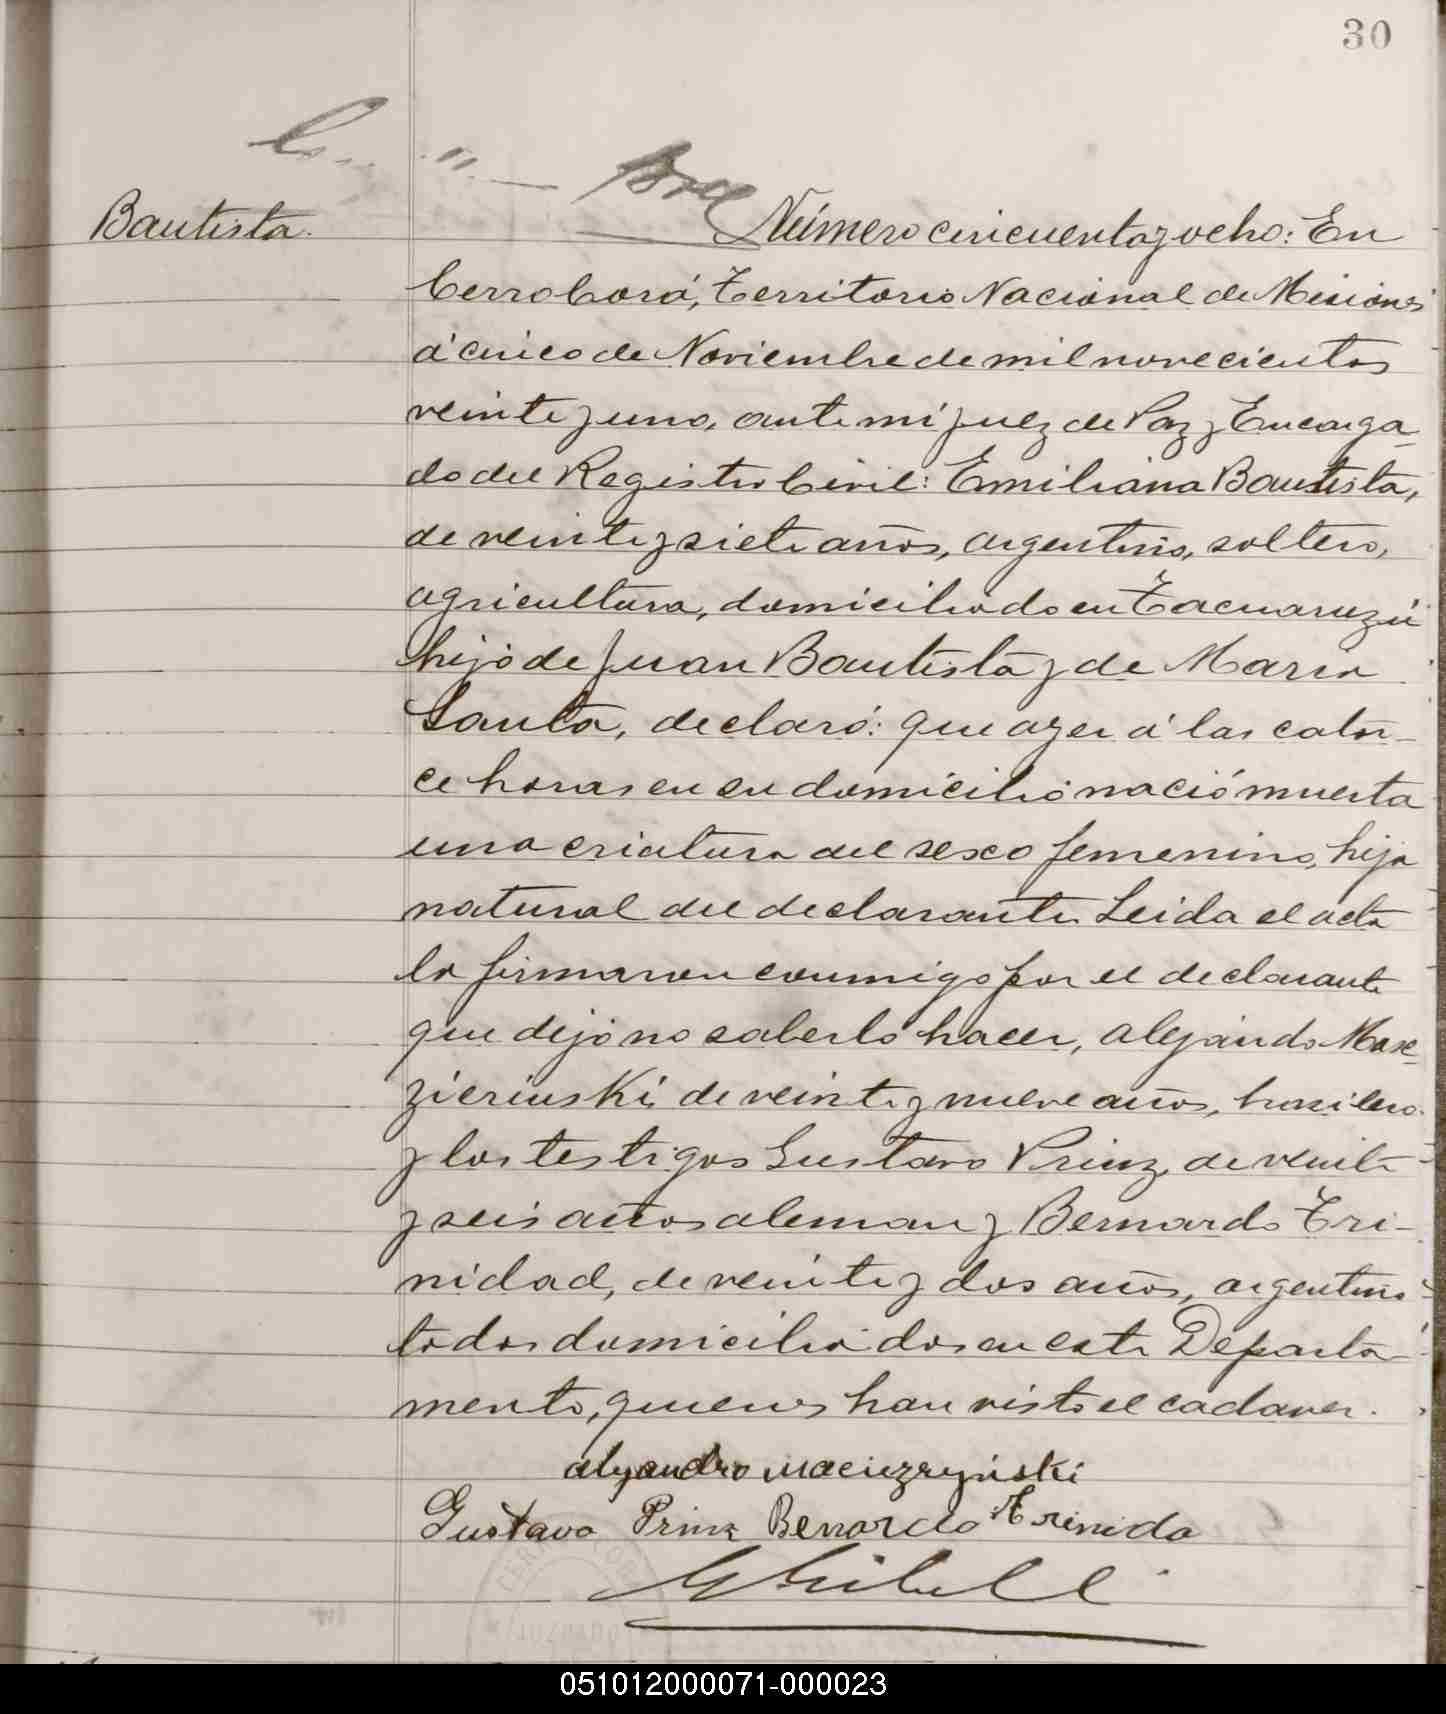 30
Bautista.
Número cincuenta y ocho: En
Cerro Corá, Territorio Nacional de Misiones
á cinco de Noviembre de mil novecientos
veinte y uno, ante mi Juez de Paz y Encarga
do del Registro Civil: Emiliano Bautista,
de veinte y siete años, argentino, soltero,
agricultura, domiciliado en Tacuaruzú
hijo de Juan Bautista y de Maria
Santa, declaró: que ayer á las cator-
ce horas en su domicilio nació muerta
una criatura del sexo femenino, hija
natural del declarante. Leida el acta
la firmaron conmigo por el declarante
que dijo no saberlo hacer, Alejandro Mase-
zierinski de veinte y nueve años, brasilero
y los testigos Gustavo Prinz, de veinte
y seis años aleman y Bernardo Tri-
nidad, de veinte y dos años, argentino
todos domiciliados en este Departa-
mento, quienes han visto el cadaver.
alejandro maciezryński
Gustavo Prinz Bernardo Trinida
051012000071-000023